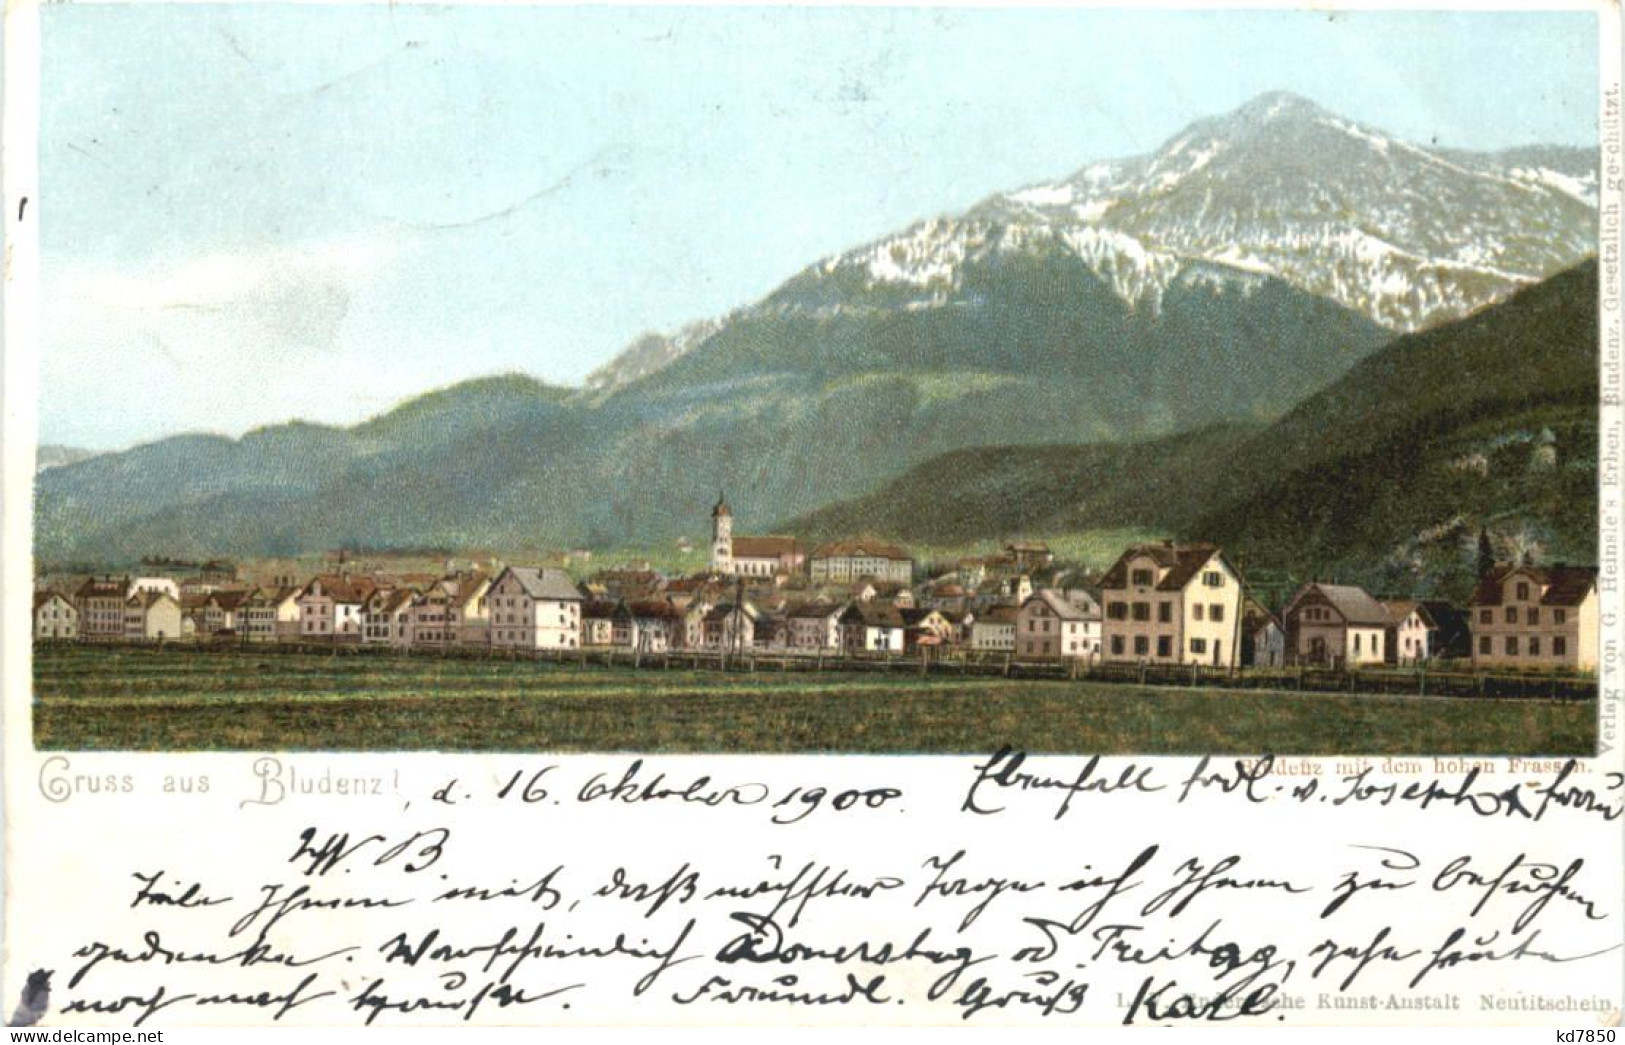 Verlag von G. Heinsle's Erben, Bludenz. Gesetzlich geschützt.
Bludenz mit dem hohen Frassen.
Gruss aus Bludenz!, d. 16. Oktober 1900.
Ebenfalls frdl. v. Joseph & Frau
W. B.
Teile Ihnen mit, daß nächster Tage ich Ihnen zu besuchen
gedenke. Warscheinlich Donerstag od. Freitag, gehe heute
noch nach Hause. Freundl. Gruß Karl.
Kunst-Anstalt Neutitschein.
kd7850